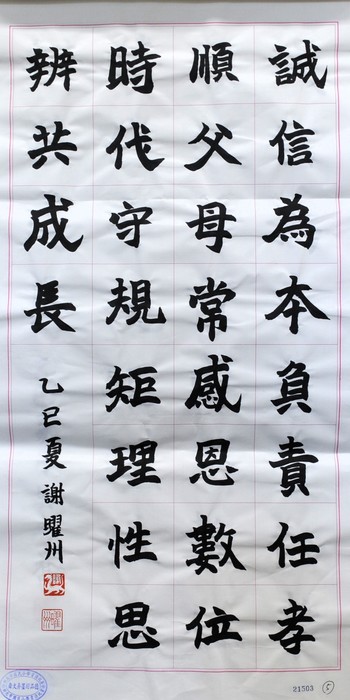 誠信為本負責任孝
順父母常感恩數位
時代守規矩理性思
辨共成長
乙巳夏 謝曜州
21503 5